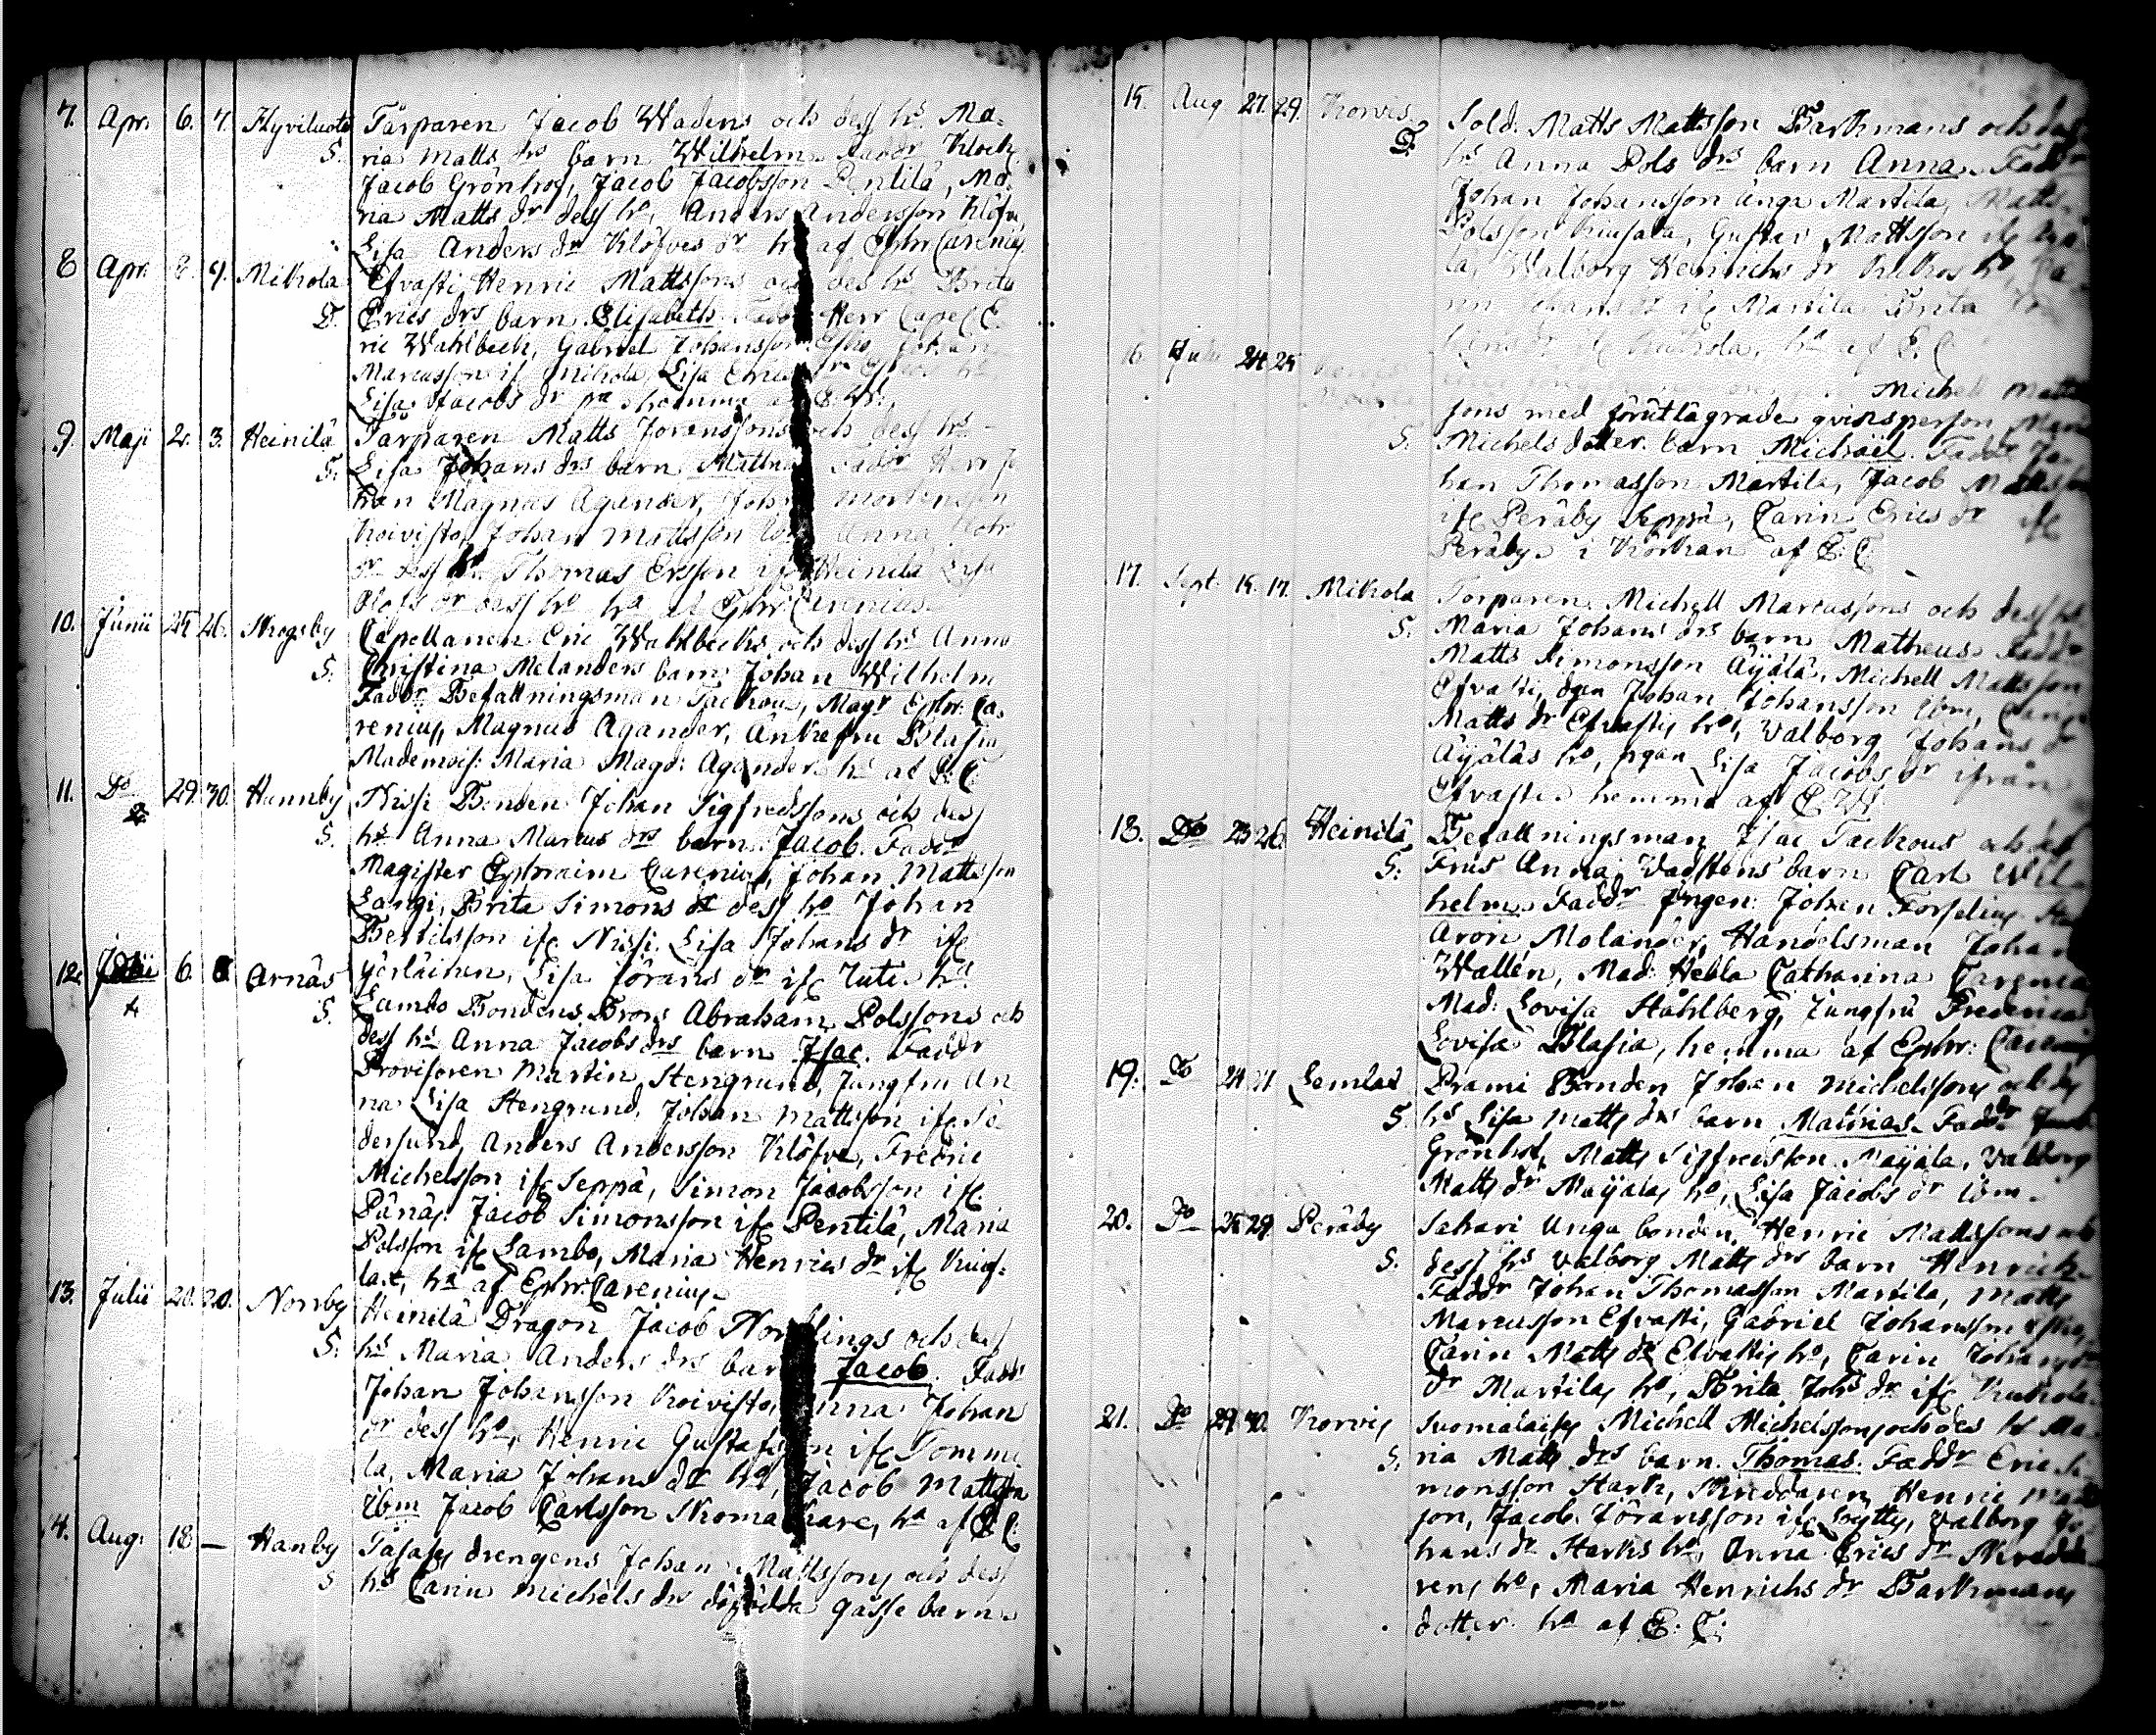 7. Apr. 6. 7. Hyviluoto Tårparen Jacob Wadens och dess hs. Ma=
S. ria Matts drs barn Wilhelm. Faddr Klock.
Jacob Grönhog, Jacob Jacobsson Pentilä, Ma=
ria Matts dr dess ho, Anders Andersson Klöfve,
Lisa Anders dr Klöfves dr hа af Ephr Carenius.
8 Apr. 8. 9. Mikola Efvasti Henric Mattssons och des hs Brita
D. Erics drs barn Elisabeth. Faddr Herr Capel. E=
ric Wahlbeck, Gabriel Johansson Johan
Marcusson if Mikola, Lisa Erics dr
Lisa Jacobs dr hemma af E. W.
9. Maji 2. 3. Heinilä Tårparen Matts Joranssons och dess hs
S. Lisa Johans drs barn Matheus Faddr Herr Jo
han Magnus Agander, Johan Mortensson
Koivisto, Johan Mattsson Anna Joh
dr dess ho. Thomas Ersson if Heinilä Lisa
Olofs dr dess ho ha af Ephr Carenius.
10. Junii 25 26. Skogsby Capellanen Eric Wahlbecks och dess hs Anna
S. Christina Melanders barn Johan Wilhelm
Faddr Befallningsman Tackou, Magr Ephr: Ca=
renius, Magnus Agander, Ankefru Blasia
Mademois: Maria Magd: Agander ha af E: C:
11. Do 29. 30. Hannby Nissi Bonden Johan Sigfredssons och dess
S. hs Anna Marcus drs barn Jacob. Faddr
Magister Ephraim Carenius, Johan Mattsson
Langi, Brita Simons dr dess ho Johan
Bertilsson if Nissi. Lisa Johans dr if
12. Julii 6. 8 Arnäs Yörläinen, Lisa Jörans dr if Juti ha
S. Lambo Bondens Brors Abraham Polssons och
dess hs Anna Jacobs drs barn Isac. Faddr
Provisoren Martin Stengrund, Jungfru An
na Lisa Stengrund, Johan Mattsson if Sö
dersund, Anders Andersson Klöfve, Fredric
Michelsson if Seppä, Simon Jacobsson if
Pänäs. Jacob Simonsson if Pentilä, Maria
Polsson if Lambo, Maria Henrics dr if Kuus=
late, ha af Ephr. Carenius.
13. Julii 20. 20. Norrby Heinilä Dragon Jacob Norrlings och dess
S. hs Maria Anders drs barn Jacob. Faddr
Johan Johansson Koivisto, Anna Johans
dr dess ho, Henric Gustafsson if Tomme
la, Maria Johans dr ho, Jacob Mattsson
ibm Jacob Carlsson Skomakare, ha af E. C:
14. Aug. 18 — Hanby Tasass drengens Johan Mattssons och dess
S hs Carin Michels drs dödfödda gosse barn.
15. Aug 27. 29. Korvis Sold. Matts Mattsson Barkmans och dess
D. hs Anna Pols drs barn Anna. Faddr
Johan Johansson unga Martila, Matts
Polsson Gustav Mattsson if
la, Walborg Henrichs dr ho, Ca
rin Johans dr if Martila Brita
ha af E. C.
16. Julii 24. 25 Michel Matts
sons med förutlägrade qvinsperson Maria
S. Michels dotter barn Michaël. Faddr Jo=
han Thomasson Martila, Jacob Mattsson
if Peräby Seppä, Carin Erics dr if
Peräby i Kyrkan af E: C.
17. Sept. 15. 17. Mikola Torparen Michell Marcussons och dess hs
S. Maria Johans drs barn Matheus Faddr
Matts Simonsson Äijälä, Michell Mattsson
Efvasti, dgn Johan Johansson ibm, Carin
Matts dr Efvastis ho, Valborg Johans dr
Äijäläs ho, pgan Lisa Jacobs dr ifrån
Efvasti hemma af E. W.
18. Do 23 26. Heinilä Befallningsman Isac Tackous och dess
S. Frus Anna Vadstens barn Carl Wil=
helm. Faddr Jüngen: Johan Forselius
Aron Molander, Handelsman Johan
Wallén, Mad: Hebla Catharina Carenia
Mad: Lovisa Ståhlberg, Jungfru Fredrica
Lovisa Blasia, hemma af Ephr: Carenius
19. Do 24 27 Lemlax Prami Bonden Johan Michelssons och dess
S. hs Lisa Matts drs barn Mathias. Faddr Jacob
Grönhod, Matts Sigfredsson Maijala, Valborg
Matts dr Maijalas ho, Lisa Jacobs dr ibm.
20. Do 25 29. Peräby Sahari Unga bonden Henric Mattssons och
S. dess hs Valborg Matts drs barn Henrich.
Faddr Johan Thomasson Martila, Matts
Marcusson Efvasti, Gabriel Johansson
Carin Matts dr Efvastis ho, Carin Johans
dr Martilas ho, Brita Johs dr if Kukola.
21. Do 29. 30. Korvis Suomalaiss Michell Michelssons och dess hs Ma=
S. ria Matts drs barn. Thomas. Faddr Eric Si
monsson Stark, Skreddaren Henric Matts
son, Jacob Jöransson if Lytty, Valborg Jo
hans dr Starks ho, Anna Erics dr Skredda
rens ho, Maria Henrichs dr Barkmans
dotter. ha af E. C.